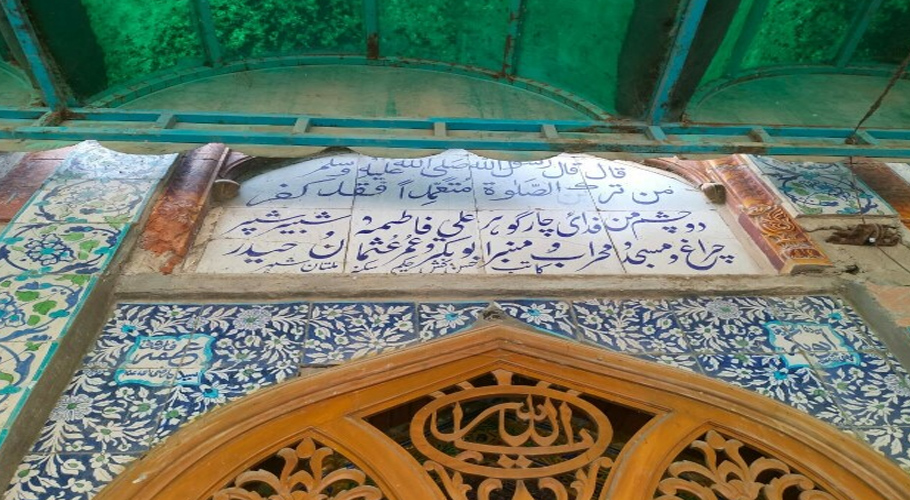 قال قال رسول الله صلى الله عليه وسلم
من ترك الصّلوٰة متعمداً فقد كفر
دو چشم من فدائی چار گوہر علی فاطمہ و شبیر شپر
چراغ و مسجد و محراب و منبر ابوبکر و عمر عثمان و حیدر
کاتب بخش سکنہ ملتان شہر
یا اللہ